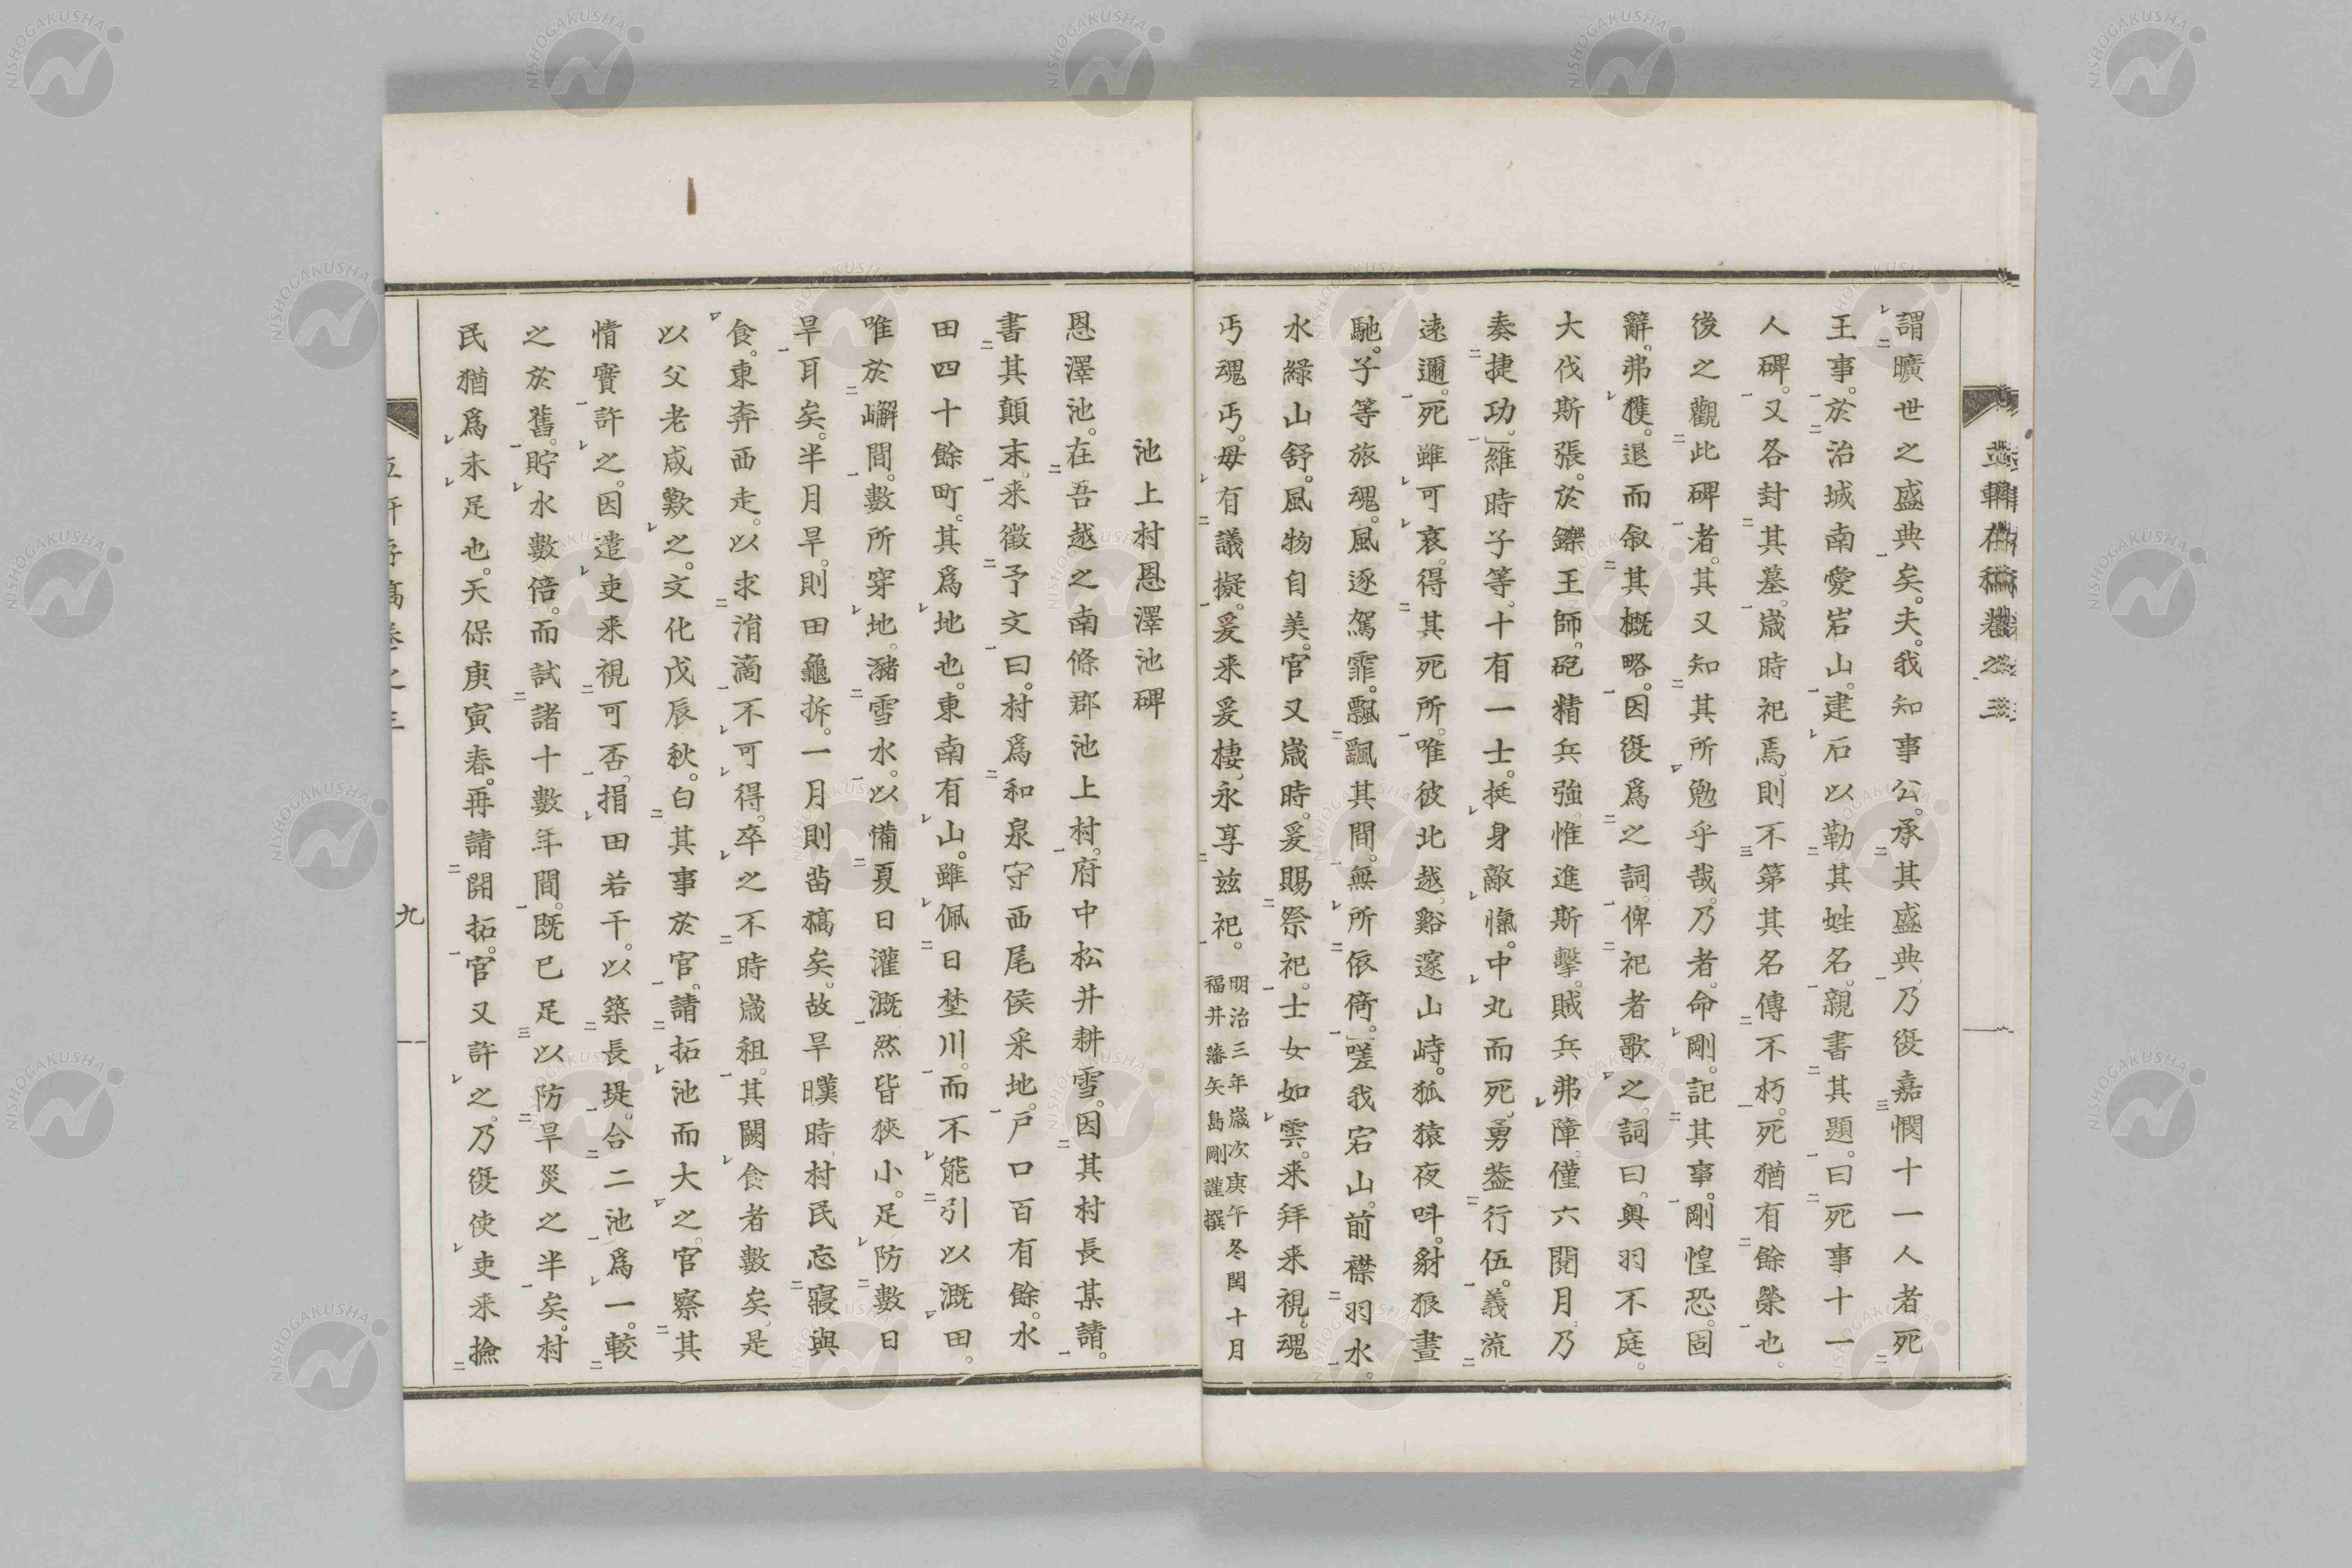 謂曠世之盛典矣。夫。我知事公。承其盛典、乃復嘉憫十一人者死
王事。於治城南愛宕山。建石以勒其姓名。親書其題。曰死事十一
人碑。又各封其墓。歲時祀焉、則不第其名傳不朽。死猶有餘榮也。
後之觀此碑者。其又知其所勉乎哉。乃者。命剛。記其事。剛惶恐。固
辭。弗獲。退而叙其概略。因復爲之詞。俾祀者歌之。詞曰。奧羽不庭。
大伐斯張。於鑠王師。砲精兵強。惟進斯擊。賊兵弗障。僅六閱月。乃
奏捷功。」維時子等。十有一士。挺身敵愾。中丸而死。勇蓋行伍。義流
遠邇。死雖可哀。得其死所。唯彼北越。谿邃山峙。狐猿夜呌。豺狼晝
馳。子等旅魂。風逐駕霏。飄飄其間。無所依倚。」嗟我宕山。前襟羽水。
水綠山舒。風物自美。官又歲時。爰賜祭祀。士女如雲。来拜来視。魂
丐魂丐。毋有議擬。爰来爰棲、永享玆祀。
明治三年歲次庚午冬閏十月
福井藩矢島剛謹撰
池上村恩澤池碑
恩澤池。在吾越之南條郡池上村。府中松井耕雪。因其村長某請。
書其顛末。来徵予文。曰。村爲和泉守西尾侯采地。戶口百有餘。水
田四十餘町。其爲地也。東南有山。雖佩日埜川。而不能引以溉田。
唯於嶰間。數所穿地。瀦雪水。以備夏日灌溉。然皆狹小。足防數日
旱耳矣。半月旱。則田龜拆。一月則苗槁矣。故旱暵時、村民忘寢與
食。東奔西走。以求涓滴不可得。卒之不時歲租。其闕食者數矣。是
以父老咸歎之。文化戊辰秋。白其事於官。請拓池而大之。官察其
情實許之。因遣吏来視可否、捐田若干。以築長堤。合二池爲一。較
之於舊。貯水數倍。而試諸十數年間。既已足以防旱災之半矣。村
民猶爲未足也。天保庚寅春。再請開拓。官又許之。乃復使吏来撿
九